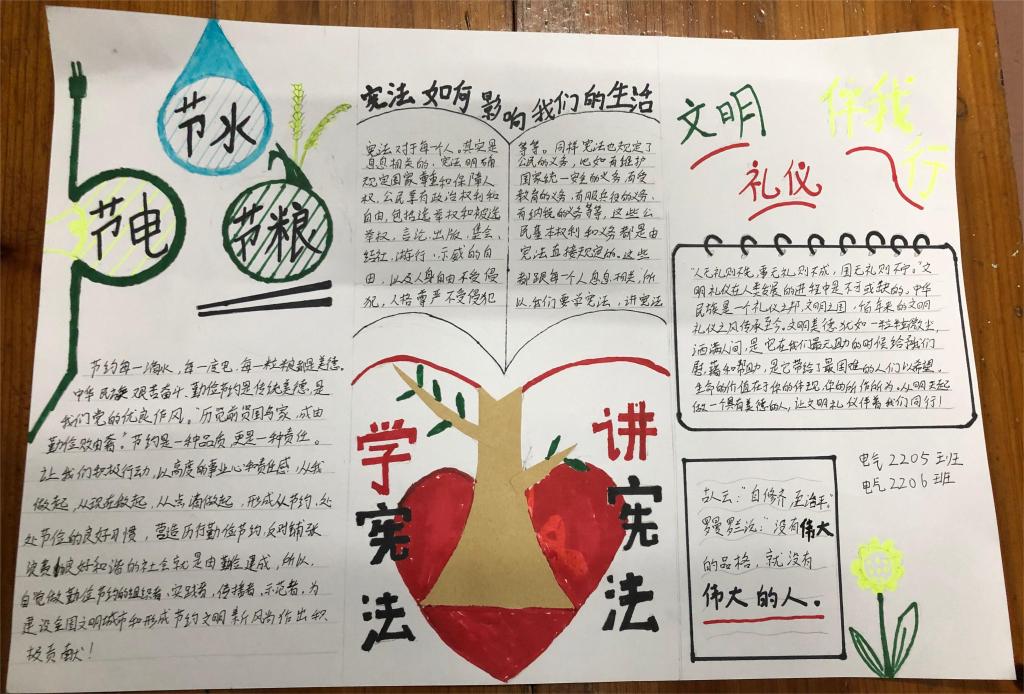 节水
节电
节粮
节约每一滴水,每一度电,每一粒粮都是美德。
中华民族艰苦奋斗、勤俭节约是传统美德,是
我们党的优良作风。"历览前贤国与家,成由
勤俭败由奢。"节约是一种品质,更是一种责任。
让我们积极行动,以高度的事业心和责任感,从我
做起,从现在做起,从点滴做起,形成从节约,处
处节俭的良好习惯,营造厉行勤俭节约,反对铺张
良好和谐的社会
自觉做勤俭节约的组织者,实践者,传播者,示范者,为
建设全国文明城市和形成节约文明新风尚作出积
极贡献!
宪法如何影响我们的生活
宪法对于每个人。其实是
息息相关的。宪法明确
规定国家尊重和保障人
权,公民享有政治权利和
自由,包括选举权和被选
举权,言论,出版,集会,
结社,游行,示威的自
由,以及人身自由不受侵
犯,人格尊严不受侵犯
等等。同样宪法也规定了
公民的义务,比如有维护
国家统一安全的义务,有受
教育的义务,有服兵役的义务,
有纳税的义务等等,这些公
民基本权利和义务都是由
宪法直接规定的。这些
都跟每个人息息相关,所
以,我们要学宪法,讲宪法
学宪法
讲宪法
文明
礼仪
伴我行
"人无礼则不生,事无礼则不成,国无礼则不宁。"文
明礼仪在人类发展的进程中是不可或缺的。中华
民族是一个礼仪之邦,文明之国,俗年来的文明
礼仪之风传承至今。文明美德,犹如一粒粒微尘,
洒满人间,是它在我们最无助的时候给我们
慰藉和帮助,是它带给了最困难的人们以希望。
生命的价值在于你的体现,你的所作所为,从明天起
做一个具有美德的人,让文明礼仪伴着我们同行!
电气2205班
电气2206班
古人云:"自修齐至治平。"
罗曼罗兰说:"没有伟大
的品格,就没有
伟大的人。